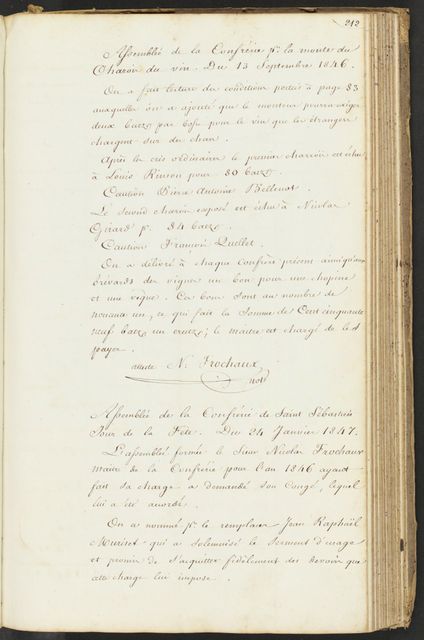 212
Assemblée de la Confrérie pr. la monte du
Charoi du vin. Du 13 Septembre 1846.
On a fait lecture du conditions portées à page 83
auxquelles on a ajouté que le monteur pourra exiger
deux batz par bosse pour le vin que les étrangers
chargent sur du char.
Après les cris ordinaires le premier charroi est échu
à Louis Rinson pour 80 batz.
Caution Pierre Antoine Bellenot.
Le second charoi exposé est échu à Nicolas
Girard pr. 84 batz.
Caution François Quellet.
On a délivré à chaque confrère présent ainsi qu'aux
brévards des vignes un bon pour une chopine
et une vigne. Ces bons sont au nombre de
nonante un, ce qui fait la somme de Cent cinquante
neuf batz un creutz; le maitre est chargé de les
payer.
atteste N. Frochaux
not
Assemblée de la Confrérie de Saint Sébastien
Jour de la Fête. Du 24 Janvier 1847.
L'assemblée formée le Sieur Nicolas Frochaux
maire de la Confrérie pour l'an 1846 ayant
fait sa charge a demandé son congé, lequel
lui a été accordé.
On a nommé pr. le remplacer Jean Raphaël
Muriset qui a solemnisé le serment d'usage
et promis de s'acquitter fidèlement des devoirs que
cette charge lui impose.